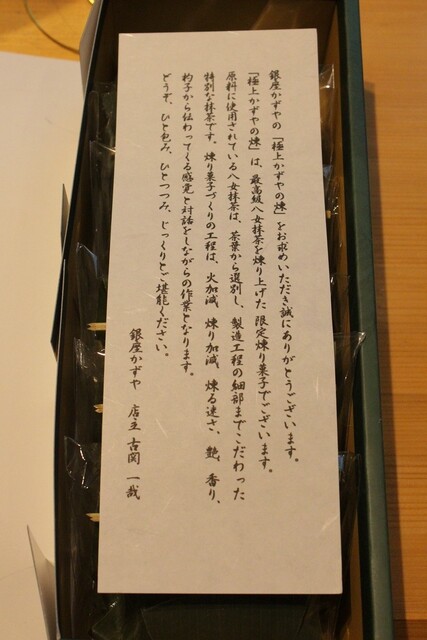 銀座かずやの「極上かずやの煉」をお求めいただき誠にありがとうございます。
「極上かずやの煉」は、最高級八女抹茶を煉り上げた限定煉り菓子でございます。
原料に使用されている八女抹茶は、茶葉から選別し、製造工程の細部までこだわった
特別な抹茶です。煉り菓子づくりの工程は、火加減、煉り加減、煉る速さ、艶、香り、
杓子から伝わってくる感覚と対話をしながらの作業となります。
どうぞ、ひと包み、ひとつつみ、じっくりとご堪能ください。
銀座かずや 店主 古関 一哉